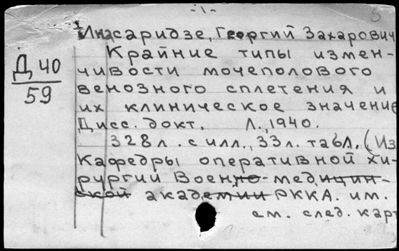 -1-
Инасаридзе, Георгий Захарович
Крайние типы измен-
Д 40
59
чивости мочеполового
венозного сплетения и
их клиническое значение
Дисс. докт. Л., 1940.
328 л. с илл., 33 л. табл. (Из
Кафедры оперативной хи-
рургии Военно-медицин-
ской академии РККА. им.
см. след. карт